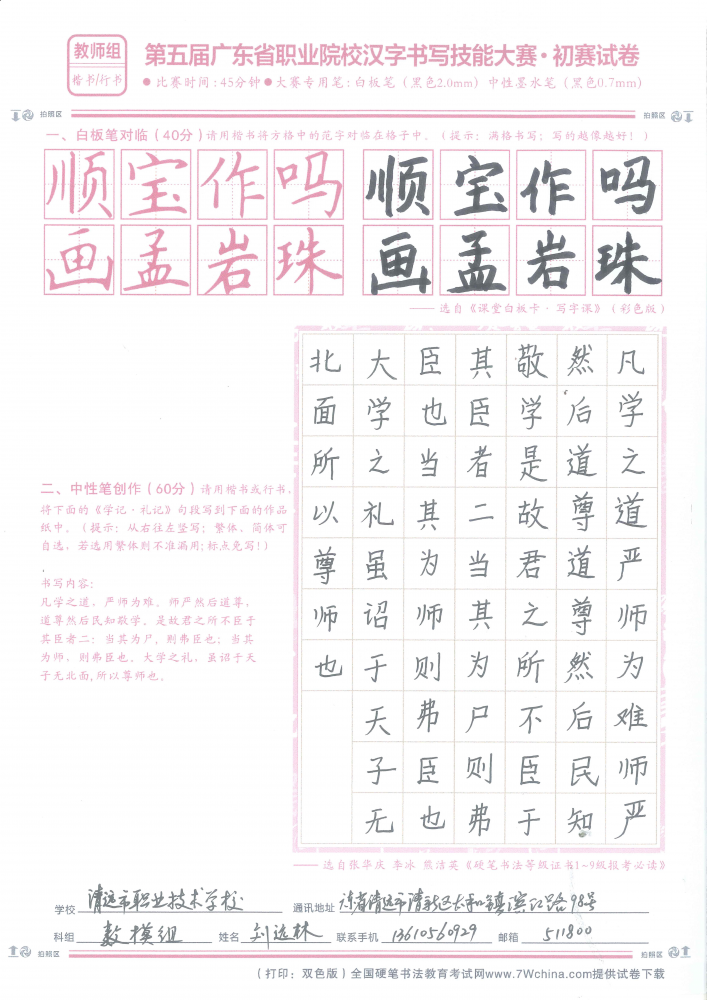 教师组
楷书/行书
第五届广东省职业院校汉字书写技能大赛·初赛试卷
● 比赛时间:45分钟 ● 大赛专用笔:白板笔(黑色2.0mm)中性墨水笔(黑色0.7mm)
拍照区
拍照区
一、白板笔对临(40分)请用楷书将方格中的范字对临在格子中。(提示:满格书写;写的越像越好!)
顺宝作吗
画孟岩珠
顺宝作吗
画孟岩珠
——选自《课堂白板卡·写字课》(彩色版)
二、中性笔创作(60分)请用楷书或行书,
将下面的《学记·礼记》句段写到下面的作品
纸中。(提示:从右往左竖写;繁体、简体可
自选,若选用繁体则不准漏用;标点免写!)
书写内容:
凡学之道,严师为难。师严然后道尊,
道尊然后民知敬学。是故君之所不臣于
其臣者二:当其为尸,则弗臣也;当其
为师,则弗臣也。大学之礼,虽诏于天
子无北面,所以尊师也。
凡学之道严师为难师严
然后道尊道尊然后民知
敬学是故君之所不臣于
其臣者二当其为尸则弗
臣也当其为师则弗臣也
大学之礼虽诏于天子无
北面所以尊师也
——选自张华庆 李冰 熊洁英《硬笔书法等级证书1~9级报考必读》
学校 清远市职业技术学校
通讯地址 清远市清新区 镇滨江路98号
科组 数模组 姓名 刘远林 联系手机 13610560929 邮箱 511800
拍照区
拍照区
(打印:双色版)全国硬笔书法教育考试网www.7Wchina.com提供试卷下载